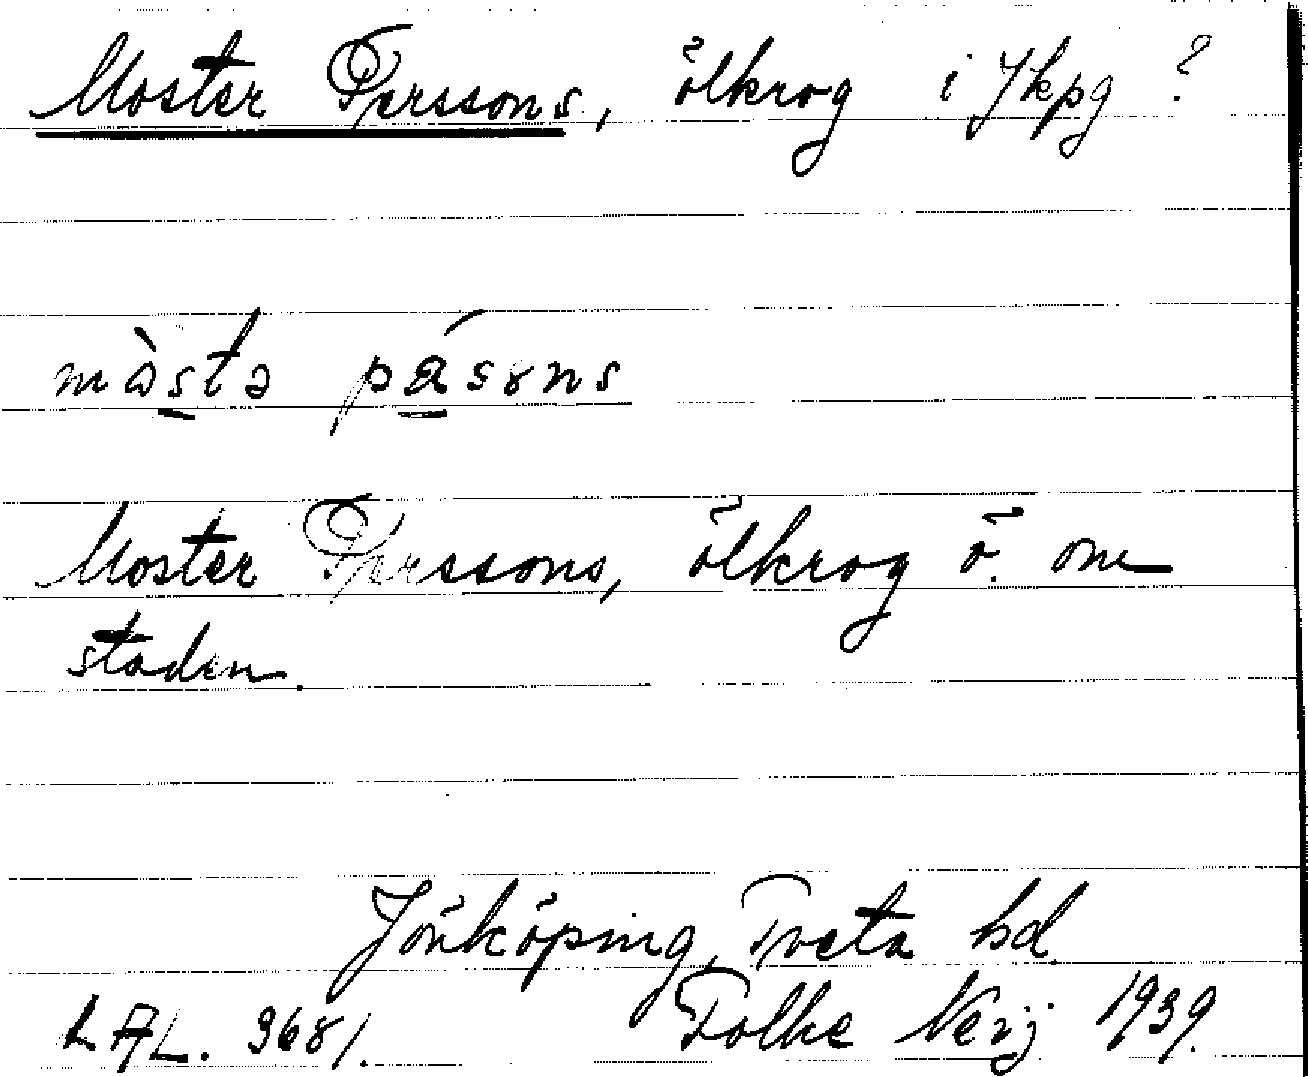 Moster Perssons, ölkrog i Jkpg ?
mòstə pǽsons
Moster Perssons, ölkrog ö. om
staden.
Jönköping, Tveta hd.
LAL. 3681. Folke Nerj 1939.